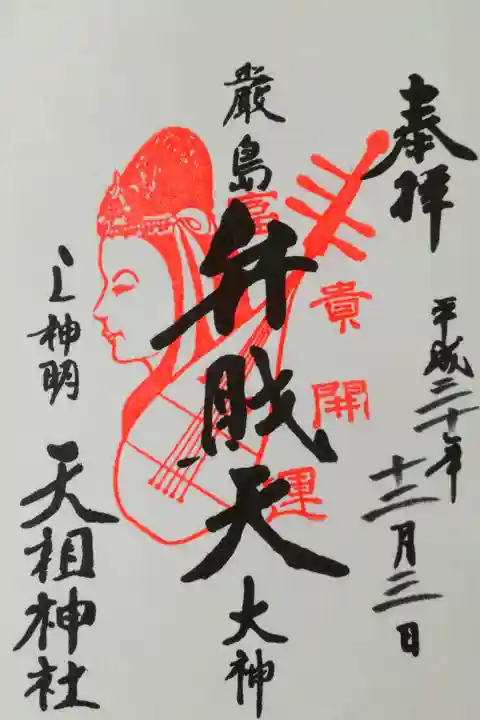 奉拝
平成三十年
十二月三日
富貴開運
厳島
弁財天
大神
心神明
天祖神社